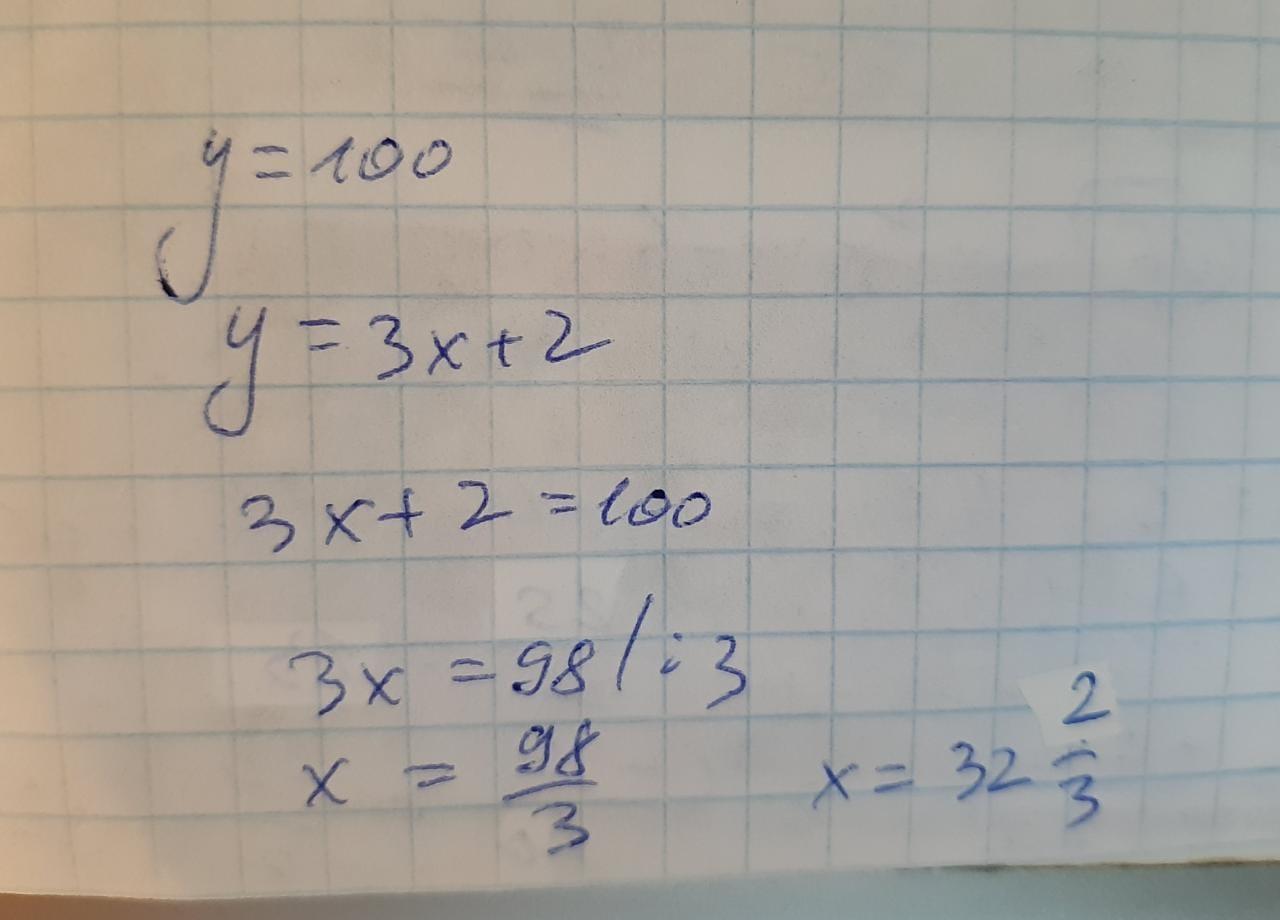 y = 100
y = 3x + 2
3x + 2 = 100
3x = 98 / : 3
x = 98/3 x = 32 2/3